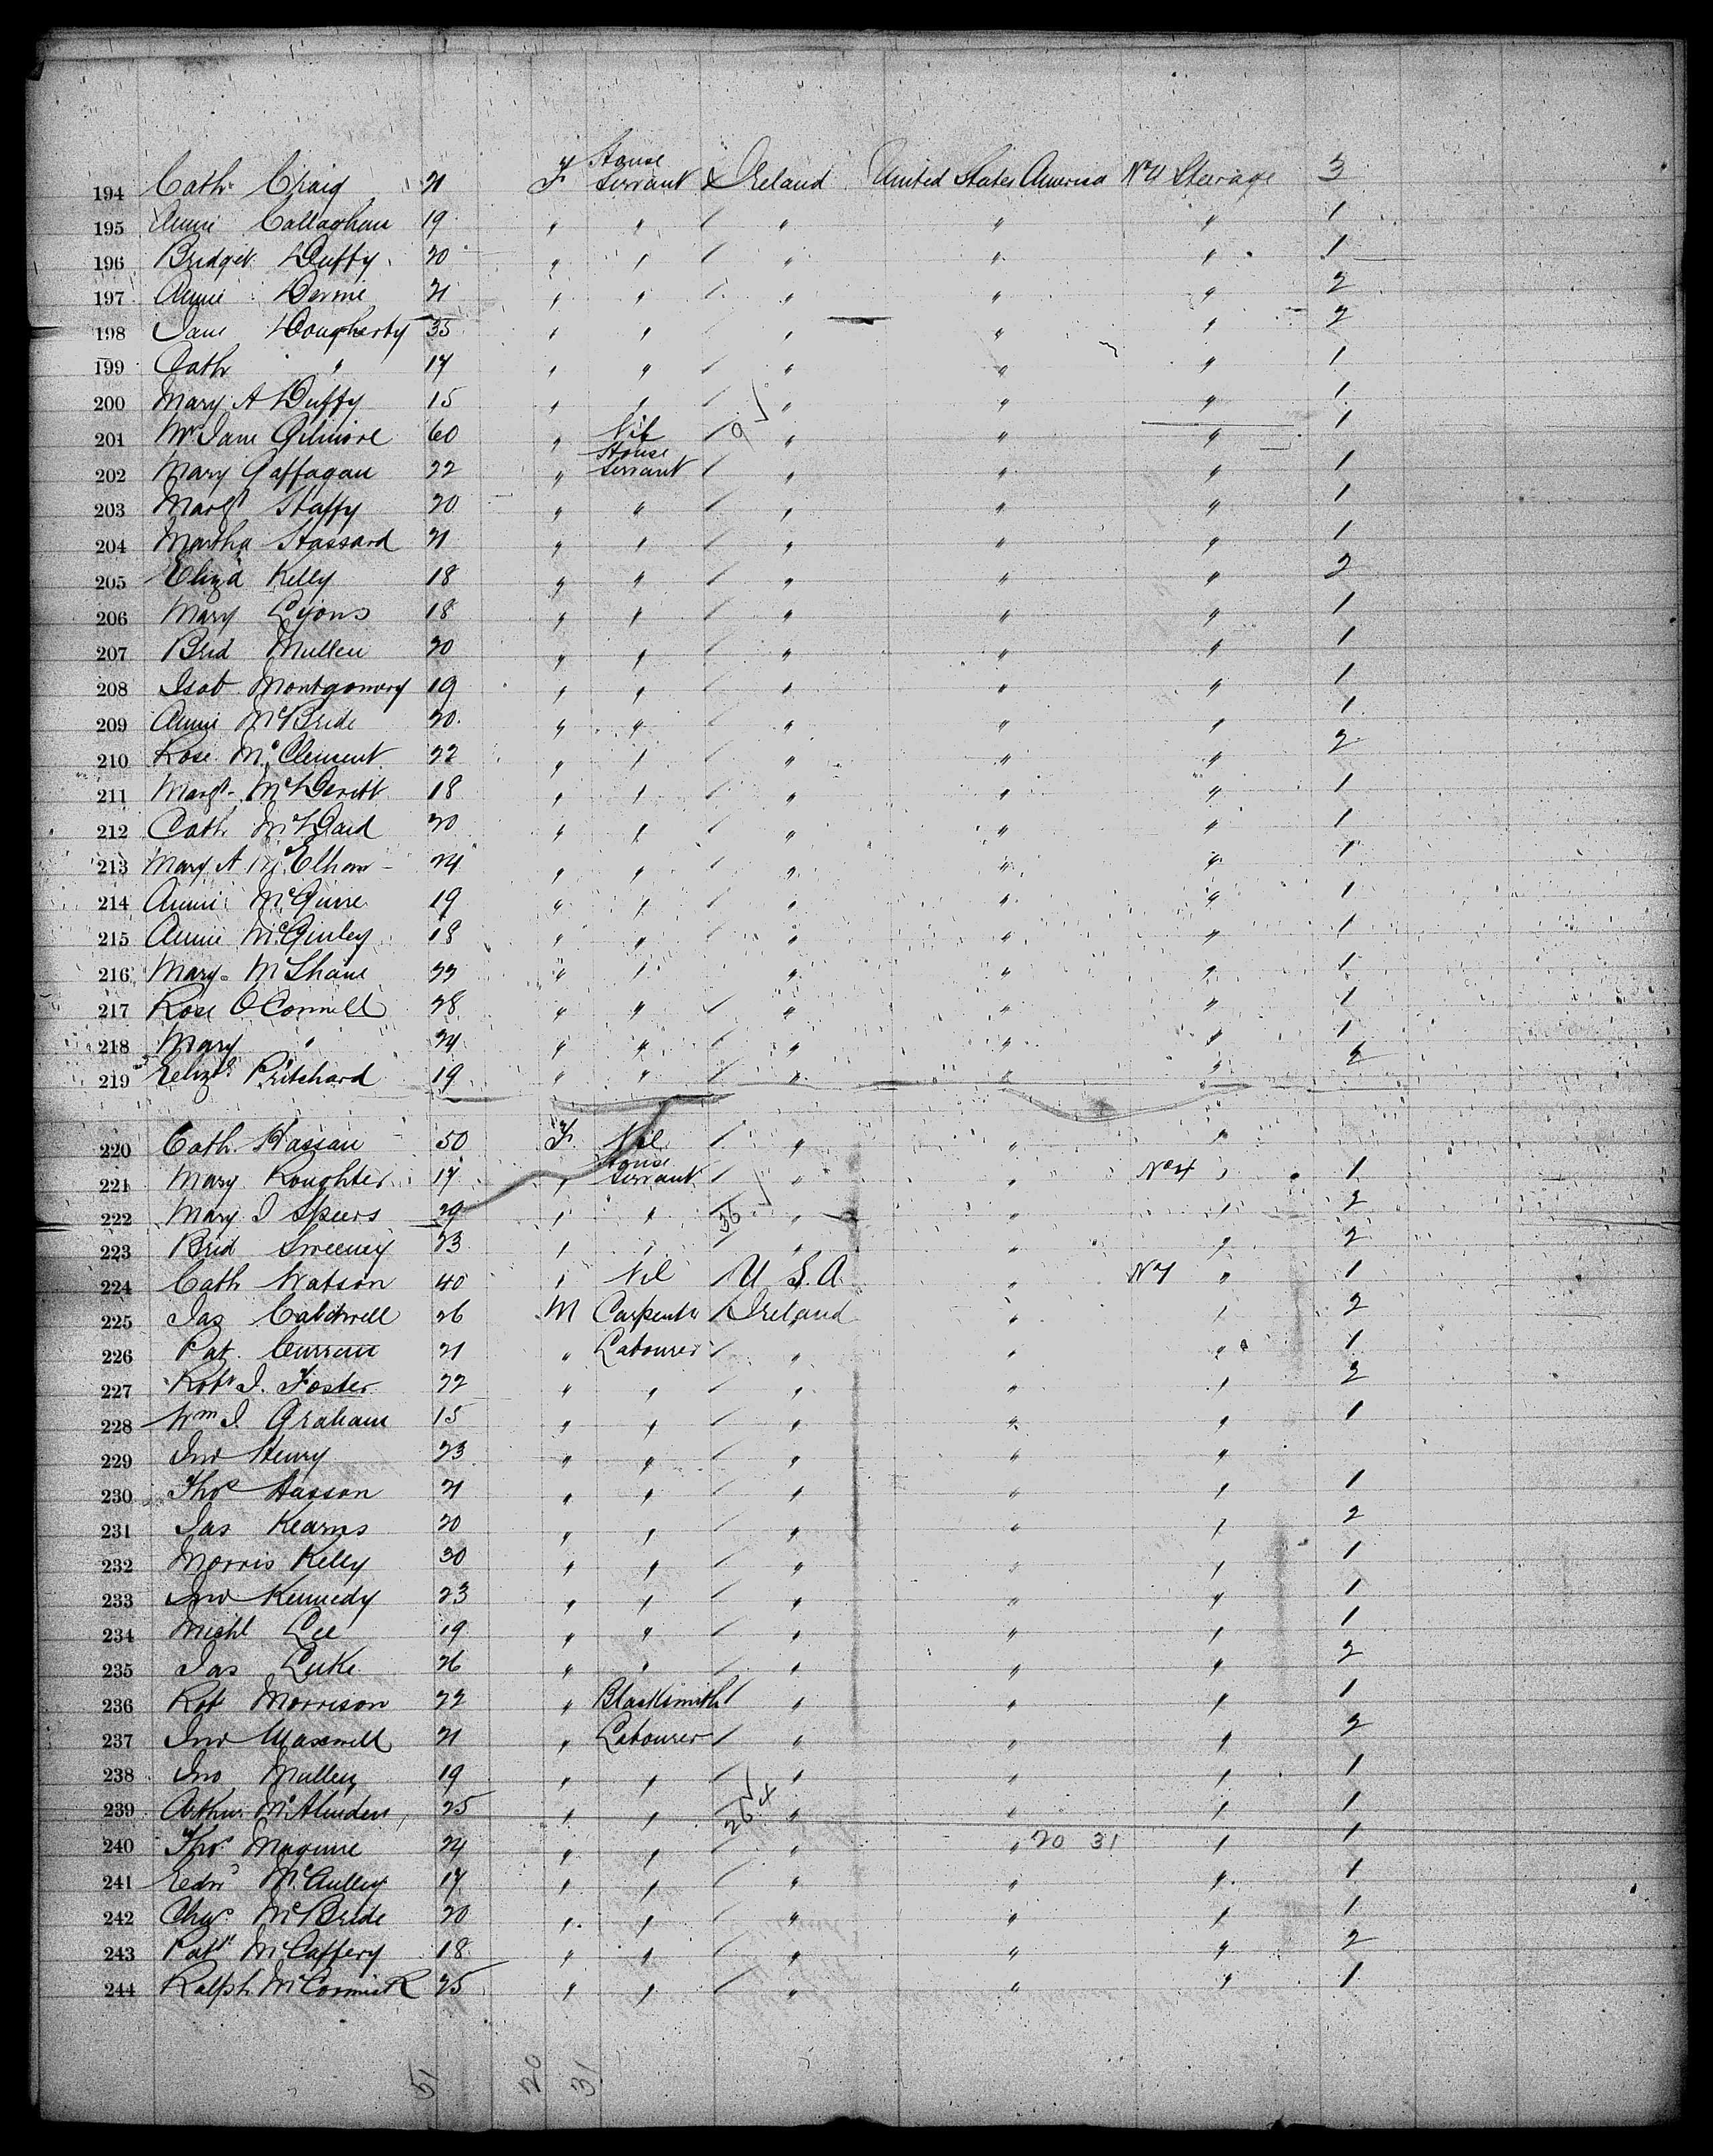 194 Cath Craig 21 F House Servant Ireland United States America No 4 Steerage 3
195 Annie Callaghan 19 " " / " " " 1
196 Bridget Duffy 20 " " / " " " 1
197 Annie 21 " " / " " " 2
198 Jane Dougherty 35 " " " " " 2
199 Cath " 17 " " / " " " 1
200 Mary A Duffy 15 " " / " " " 1
201 Mrs Jane Gilmore 60 " Nil / " " " 1
202 Mary Gaffagan 22 " House Servant / " " " 1
203 Margt Haffy 20 " " / " " " 1
204 Martha Hassard 21 " " / " " " 1
205 Eliza Kelly 18 " " / " " " 2
206 Mary Lyons 18 " " / " " " 1
207 Brid Mullen 20 " " / " " " 1
208 Isab Montgomery 19 " " / " " " 1
209 Annie McBride 20 " " / " " " 1
210 Rose McClement 22 " " / " " " 2
211 Margt McDevitt 18 " " / " " " 1
212 Cath McDaid 20 " " / " " " 1
213 Mary A 24 " " / " " " 1
214 Annie McGuire 19 " " / " " " 1
215 Annie McGinley 18 " " / " " " 1
216 Mary McShane 22 " " " " " 1
217 Rose O'Connell 28 " " / " " " 1
218 Mary " 24 " " / " " " 1
219 Elizth Pritchard 19 " " / " " " 2
220 Cath Hassan 50 F Nil / " " "
221 Mary Roughter 17 " House Servant / " " No 4 " 1
222 Mary J Speers 29 " " 36 " " " 2
223 Brid Sweeney 23 " " / " " " 2
224 Cath Watson 40 " Nil / U S.A. " No 1 " 1
225 Jas Caldwell 26 M Carpenter / Ireland " " 2
226 Pat Curran 21 " Labourer / " " " 1
227 Robt J. Foster 22 " " / " " " 2
228 Wm J. Graham 15 " " / " " " 1
229 Jno Henry 23 " " / " " "
230 Thos Hasson 21 " " / " " " 1
231 Jas Kearns 20 " " / " " " 2
232 Morris Kelly 30 " " / " " " 1
233 Jno Kennedy 23 " " / " " " 1
234 Michl Lee 19 " " / " " " 1
235 Jas Luke 26 " " / " " " 2
236 Robt Morrison 22 " Blacksmith / " " " 1
237 Jno Maxwell 21 " Labourer / " " " 2
238 Jno Mullen 19 " " / " " " 1
239 Arthur McAlinden 25 " " 26 " " " 1
240 Thos Maguire 24 " " / " " 20 31 " 1
241 Edwd McCulley 17 " " / " " " 1
242 Chas McBride 20 " " / " " " 1
243 Patk McCaffery 18 " " / " " " 2
244 Ralph McCormick 25 " " / " " " 1
51 20 31